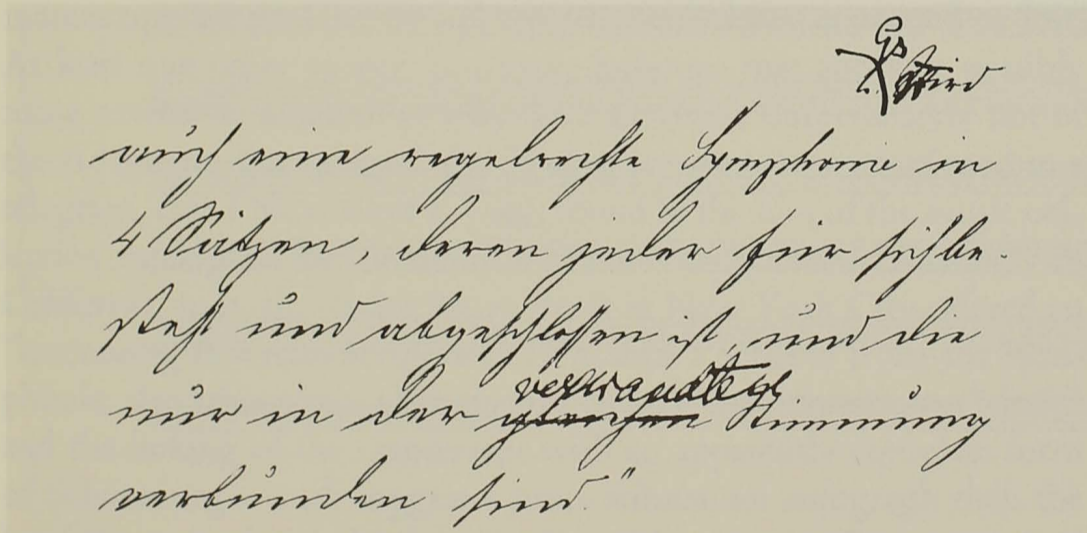 Es wird
auch eine regelrechte Symphonie in
4 Sätzen, deren jeder für sich be-
steht und abgeschlossen ist, und die
nur in der gleichen verwandten Stimmung
verbunden sind."